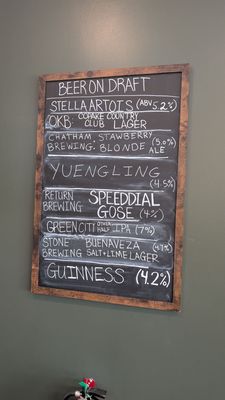 BEER ON DRAFT
STELLA ARTOIS (ABV 5.2%)
OKB: COPAKE COUNTRY
CLUB LAGER
CHATHAM STAWBERRY
BREWING: BLONDE ALE (5.0%)
YUENGLING
(4.5%)
RETURN BREWING SPEEDDIAL
GOSE (4%)
GREEN CITY OTHER HALF IPA (7%)
STONE BUENAVEZA
BREWING SALT + LIME LAGER (4.7%)
GUINNESS (4.2%)